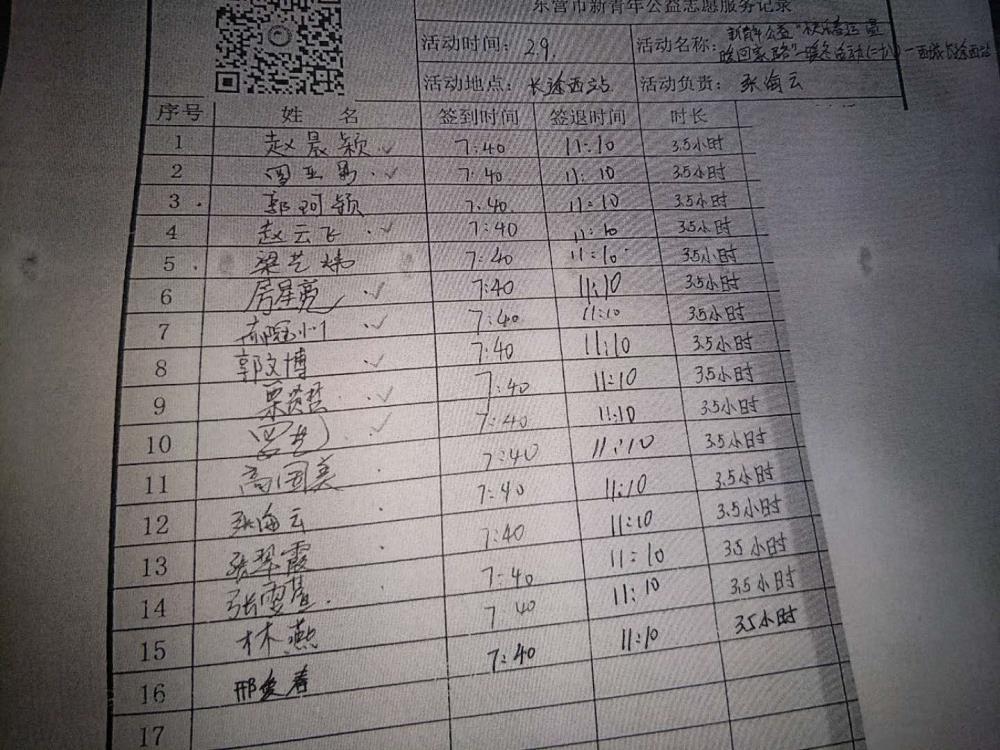 东营市新青年公益志愿服务记录
活动时间: 2.9. 活动名称: 新青年公益"快乐春运 温
暖回家路"-暖冬活动(二九)-西城长途西站
活动地点: 长途西站 活动负责: 张海云
序号 姓 名 签到时间 签退时间 时长
1 赵晨颖 7:40 11:10 3.5小时
2 7:40 11:10 3.5小时
3 郭珂颖 7:40 11:10 3.5小时
4 赵云飞 7:40 11:10 3.5小时
5 梁艺炜 7:40 11:10 3.5小时
6 房星亮 7:40 11:10 3.5小时
7 7:40 11:10 3.5小时
8 郭文博 7:40 11:10 3.5小时
9 7:40 11:10 3.5小时
10 7:40 11:10 3.5小时
11 高国美 7:40 11:10 3.5小时
12 张海云 7:40 11:10 3.5小时
13 张翠霞 7:40 11:10 3.5小时
14 7:40 11:10 3.5小时
15 林燕 7:40 11:10 3.5小时
16 邢爱春 7:40 11:10 3.5小时
17